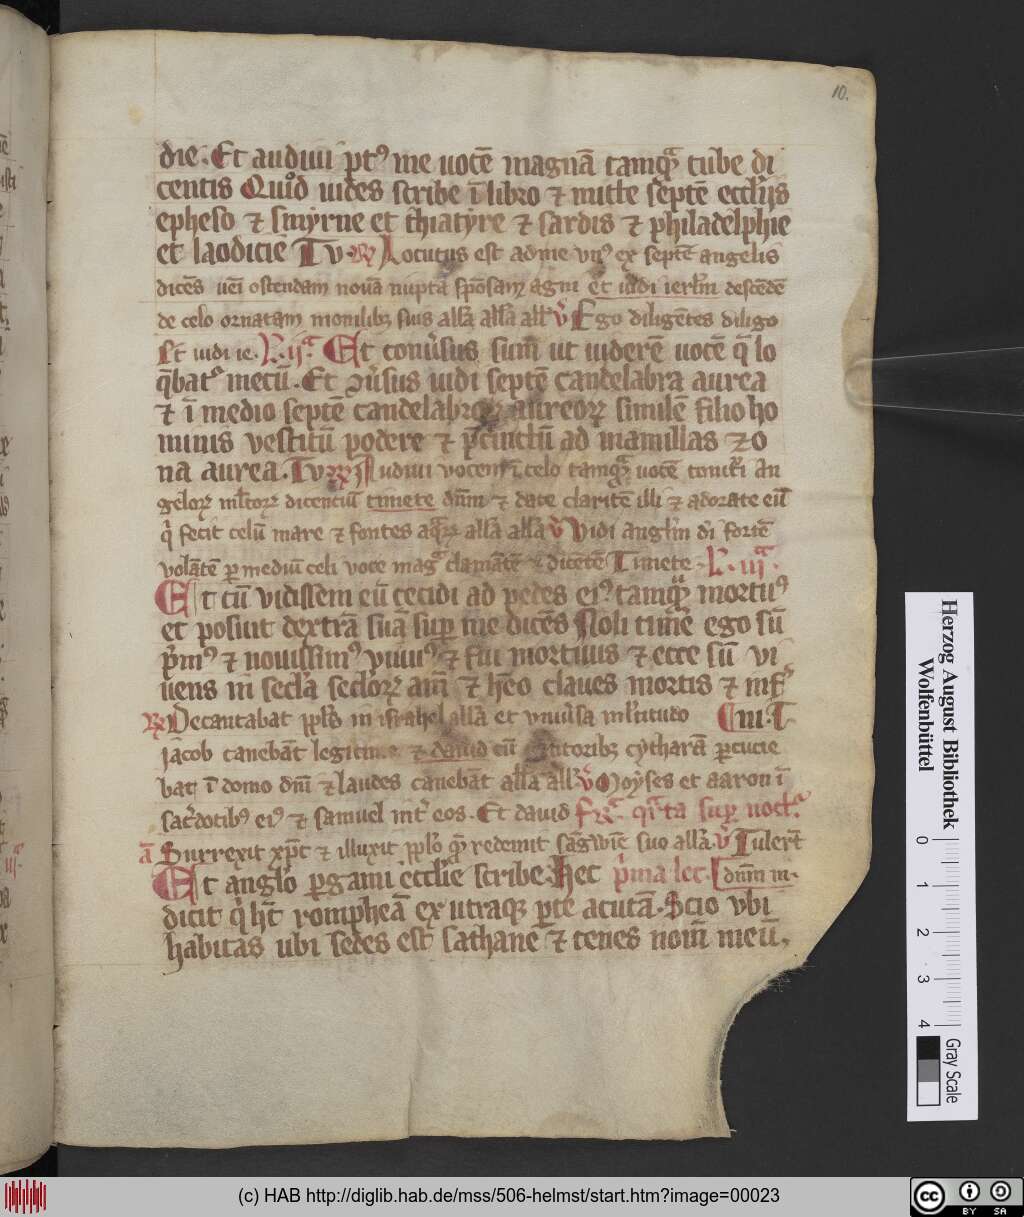 10.
die. Et audiui pꝰt me uocē magnā tamqᵃ tube di
centis Quod uides scribe ī libro ⁊ mitte septē eccl'ijs
epheso ⁊ smyrne et thiatyre ⁊ sardis ⁊ philadelphie
et laodicie Tu. R) Locutus est ad me vnꝰ ex septē angelis
dicēs uēi ostendam nouā nuptā spōsam agni et uidi ierl'm descēdē
de celo ornatam monilibꝫ suis all'a all'a all' v̓ Ego diligētes diligo
Et uidi ie. L. ijᵃ Et conu'sus sum ut uiderē uocē q̄ lo
q̄batᵉ mecū. Et ꝯu'sus uidi septē candelabra aurea
⁊ ī medio septē candelabroꝝ aureoꝝ similē filio ho
minis vestitū podere ⁊ p̄cinctū ad mamillas zo
na aurea. Tu R) Audiui vocem ī celo tamqᵃ uocē tonit'ui an
geloꝝ ml'toꝝ dicentiū timete dn̄m ⁊ date claritē illi ⁊ adorate eū
q' fecit celū mare ⁊ fontes aqᵃꝝ all'a all'a v̓ Vidi angl'm d'i fortē
volātē ꝑ mediū celi voce magᵃ clamātē ⁊ dicētē Timete. L. iijᵃ.
Et cū vidissem eū cecidi ad pedes eiꝰ tamqᵃ mortuꝰ
et posuit dextrā suā suꝑ me dicēs Noli tim'e ego sū
p'mꝰ ⁊ nouissimꝰ viuꝰ ⁊ fui mortuus ⁊ ecce sū vi
uens in secl'a secl'oꝝ am̄ ⁊ h'eo claues mortis ⁊ inf'
R) Decantabat ppl's in israhel all'a et vniu'sa ml'titudo ni. T
iacob canebāt legitime ⁊ dauid cū cātoribꝫ cytharā ꝑcucie
bat ī domo dn̄i ⁊ laudes canebāt all'a all' v̓ Moyses et aaron ī
sac'dotibꝰ eiꝰ ⁊ samuel int' eos. Et dauid Fʳᵃ. qᵃrta suꝑ noctᵃ.
ā Surrexit xp̄c ⁊ illuxit ppl'o qᵉ redemit sāgwīe suo all'a. v̓ Tulert̄
Et angl'o ꝑgami eccl'ie scribe. Hec p'ma lec. dn̄m m.
dicit q' h't rompheā ex utraqꝫ ꝑte acutā. Scio vbi
habitas ubi sedes est sathane ⁊ tenes nom̄ meū.
Herzog August Bibliothek
Wolfenbüttel
0 1 2 3 4
Gray Scale
(c) HAB http://diglib.hab.de/mss/506-helmst/start.htm?image=00023
CC BY SA